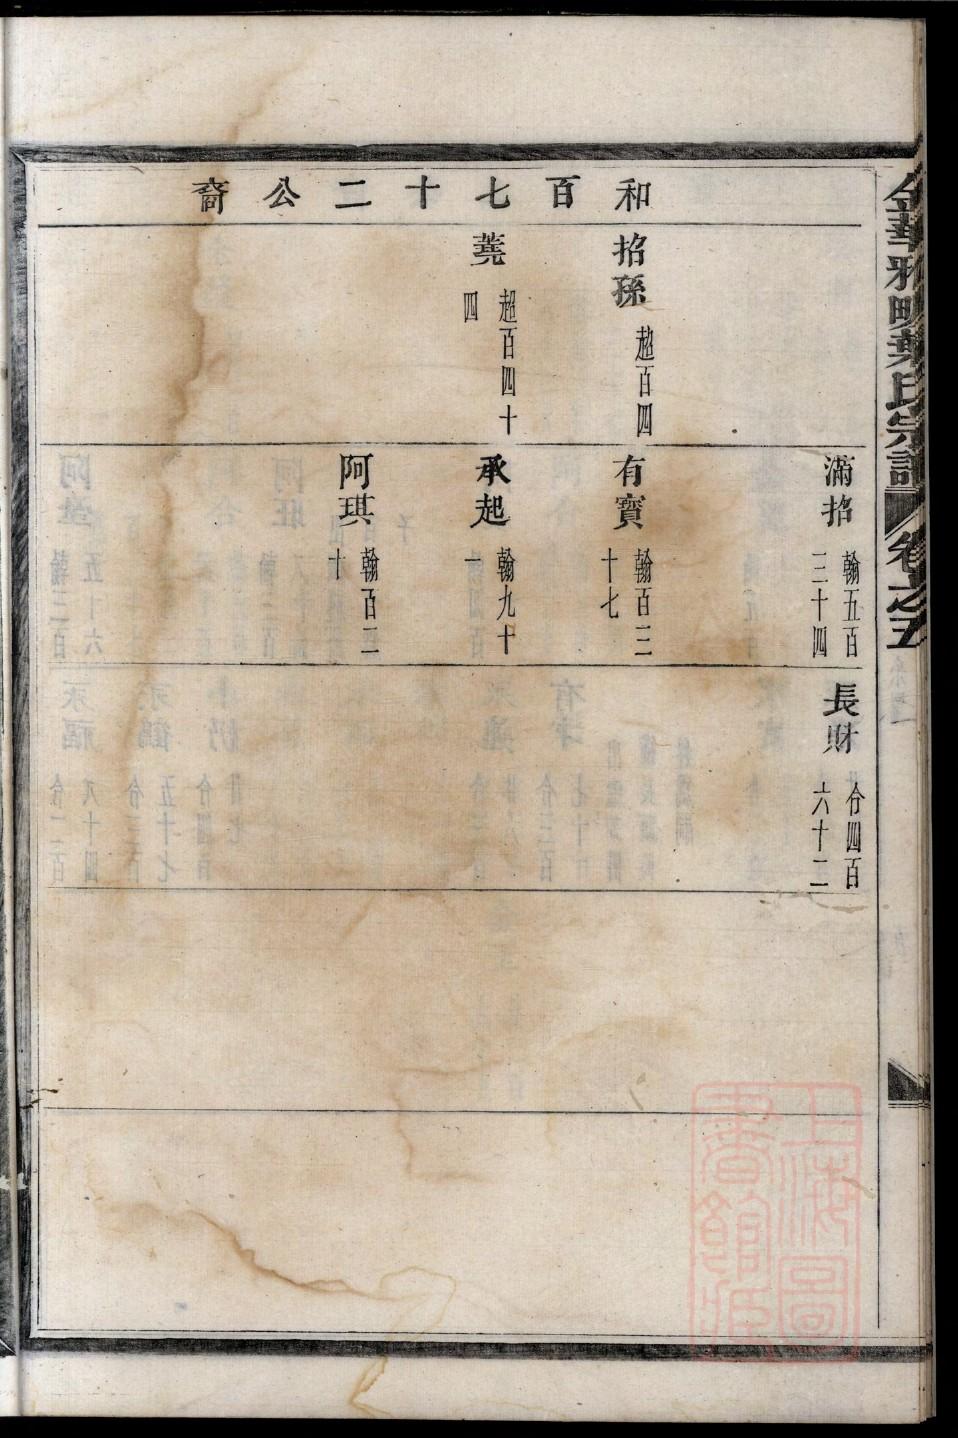 金華雅畈葉氏宗譜 卷之五
和百七十二公裔
招孫 超百四
蕘 超百四十四
滿招 翰五百三十四
有寶 翰百三十七
承起 翰九十一
阿琪 翰百三十
長財 合四百六十二
上海圖書館藏